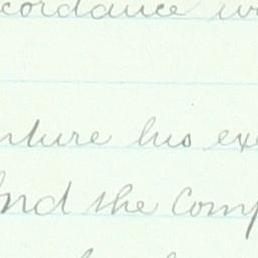 cordance w
nture his exe
and the comp